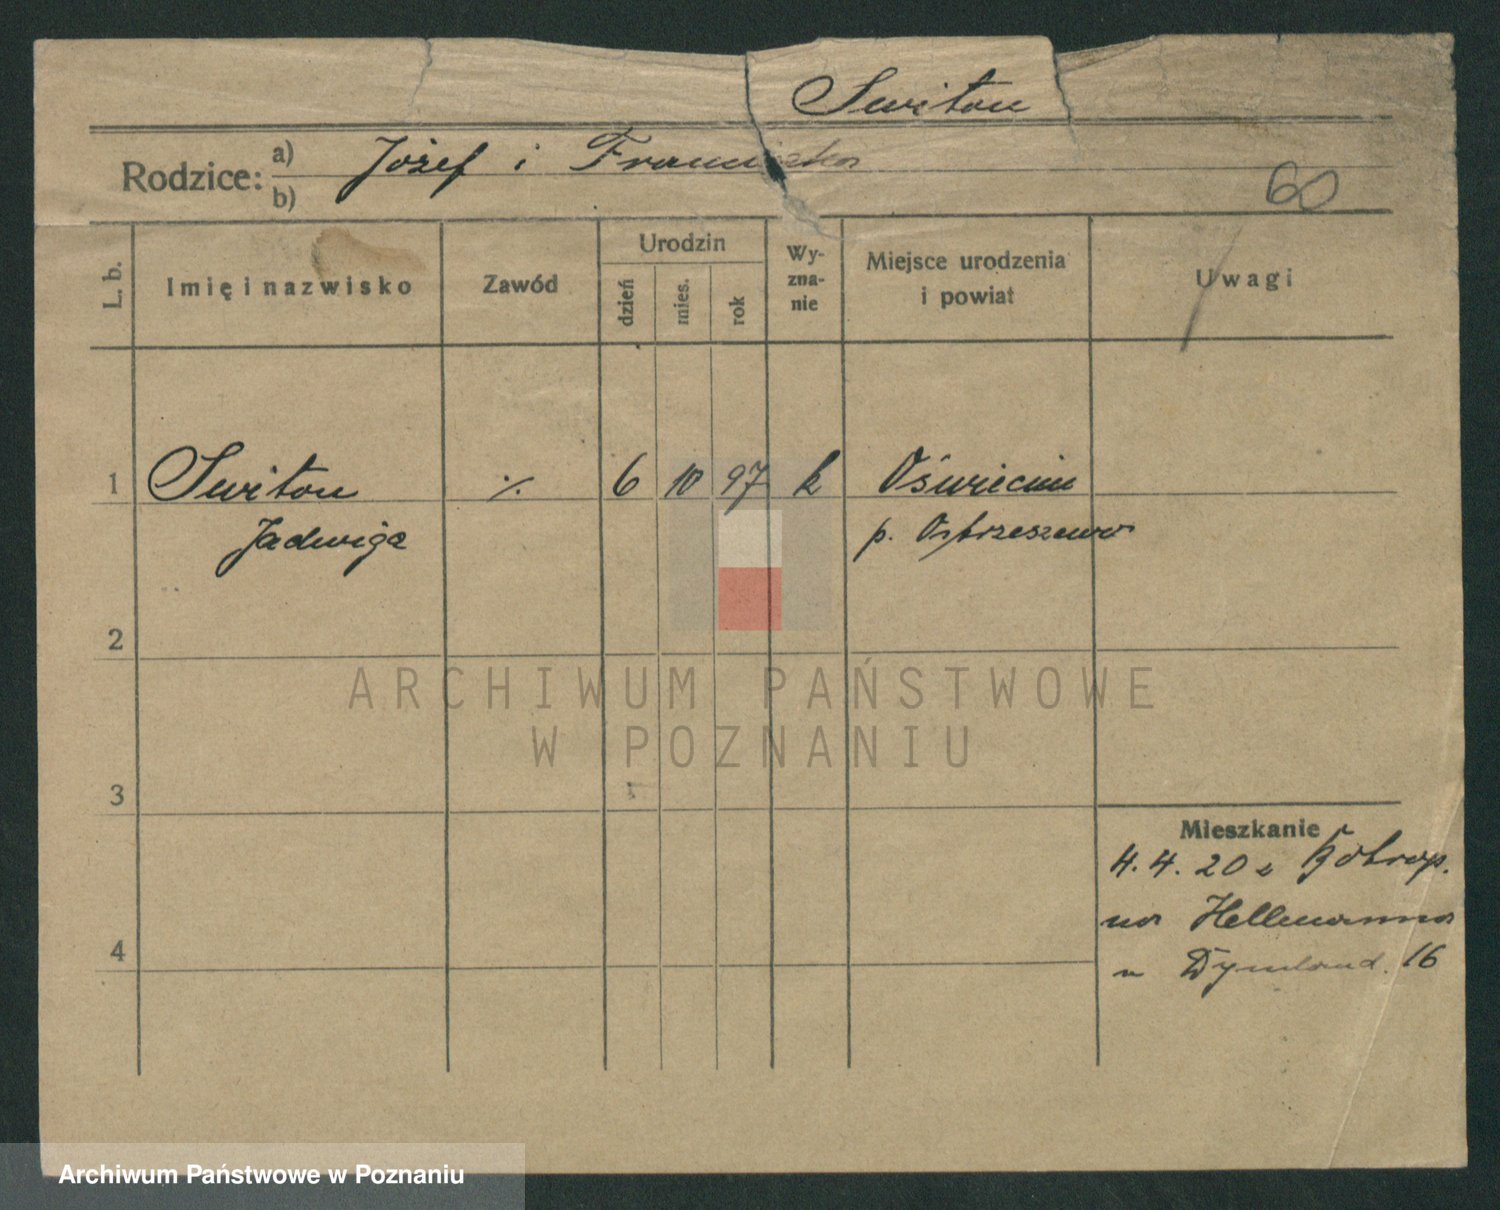 Switon
Rodzice: a) Józef i Franciszka
b)
60
L. b. Imię i nazwisko Zawód Urodzin dzień mies. rok Wy-zna-nie Miejsce urodzenia i powiat Uwagi
1 Switon ·/. 6 10 97 k
Jadwiga p. Ostrzeszewo
2
3
Mieszkanie
4. 4. 20 z
na Hellmanna
4
16
ARCHIWUM PAŃSTWOWE
W POZNANIU
Archiwum Państwowe w Poznaniu